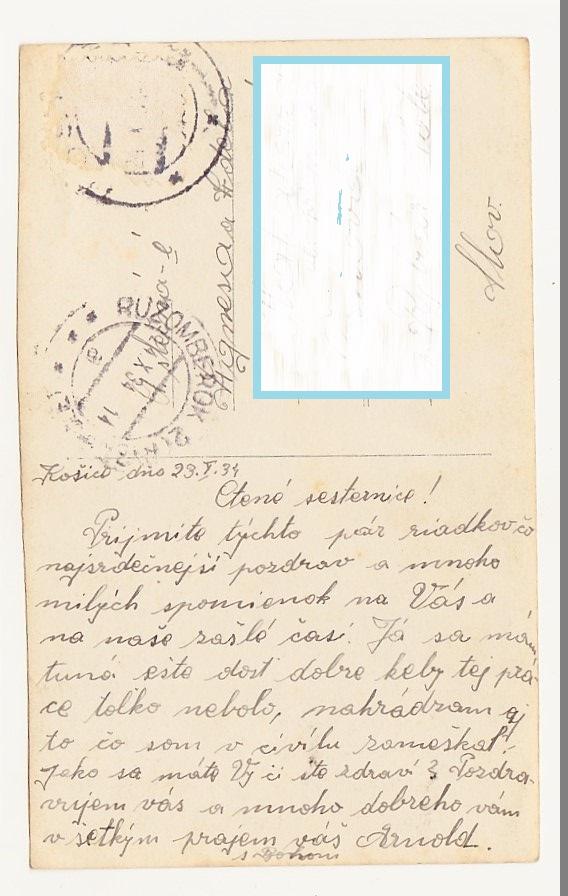 RUŽOMBEROK
X 34
14
Slov.
Košice dňo 23.X.34
Ctené sesternice!
Prijmite týchto pár riadkov čo
najsrdečnejší pozdrav a mnoho
milých spomienok na Vás a
na naše zašlé časi. Já sa mám
tuná ešte dosť dobre keby tej prá-
ce tolko nebolo, nahrádzam aj
to čo som v civilu zameškal,
Jeko sa máte Vy či ste zdraví? Pozdra-
vujem vás a mnoho dobreho vám
všetkým prajem váš Arnold.
s Bohom